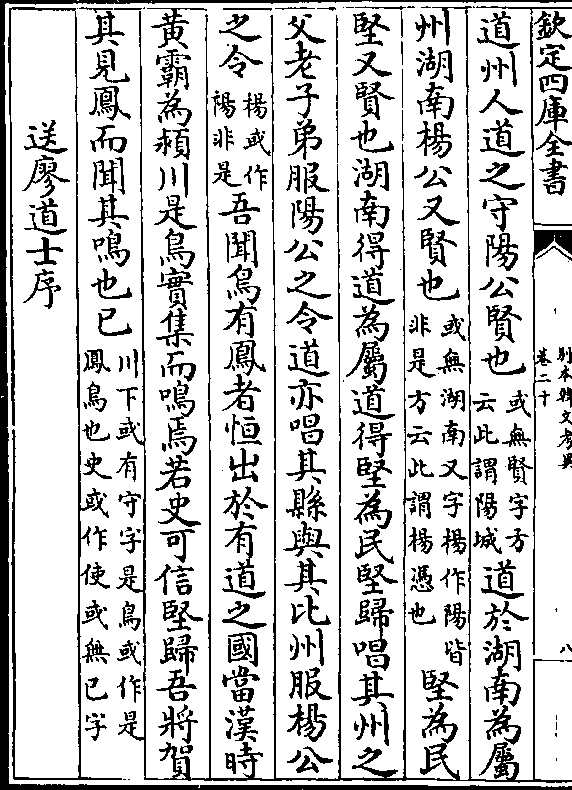 欽定四庫全書
別本韓文考異
卷二十
八
道州人道之守陽公賢也
或無賢字方
云此謂陽城
道於湖南為屬
州湖南楊公又賢也
或無湖南又字楊作陽皆
非是方云此謂楊憑也
堅為民
堅又賢也湖南得道為屬道得堅為民堅歸唱其州之
父老子弟服陽公之令道亦唱其縣與其比州服楊公
之令
楊或作
陽非是
吾聞鳥有鳳者恒出於有道之國當漢時
黃霸為潁川是鳥實集而鳴焉若史可信堅歸吾將賀
其見鳳而聞其鳴也已
川下或有守字是鳥或作是
鳳鳥也史或作使或無已字
送廖道士序